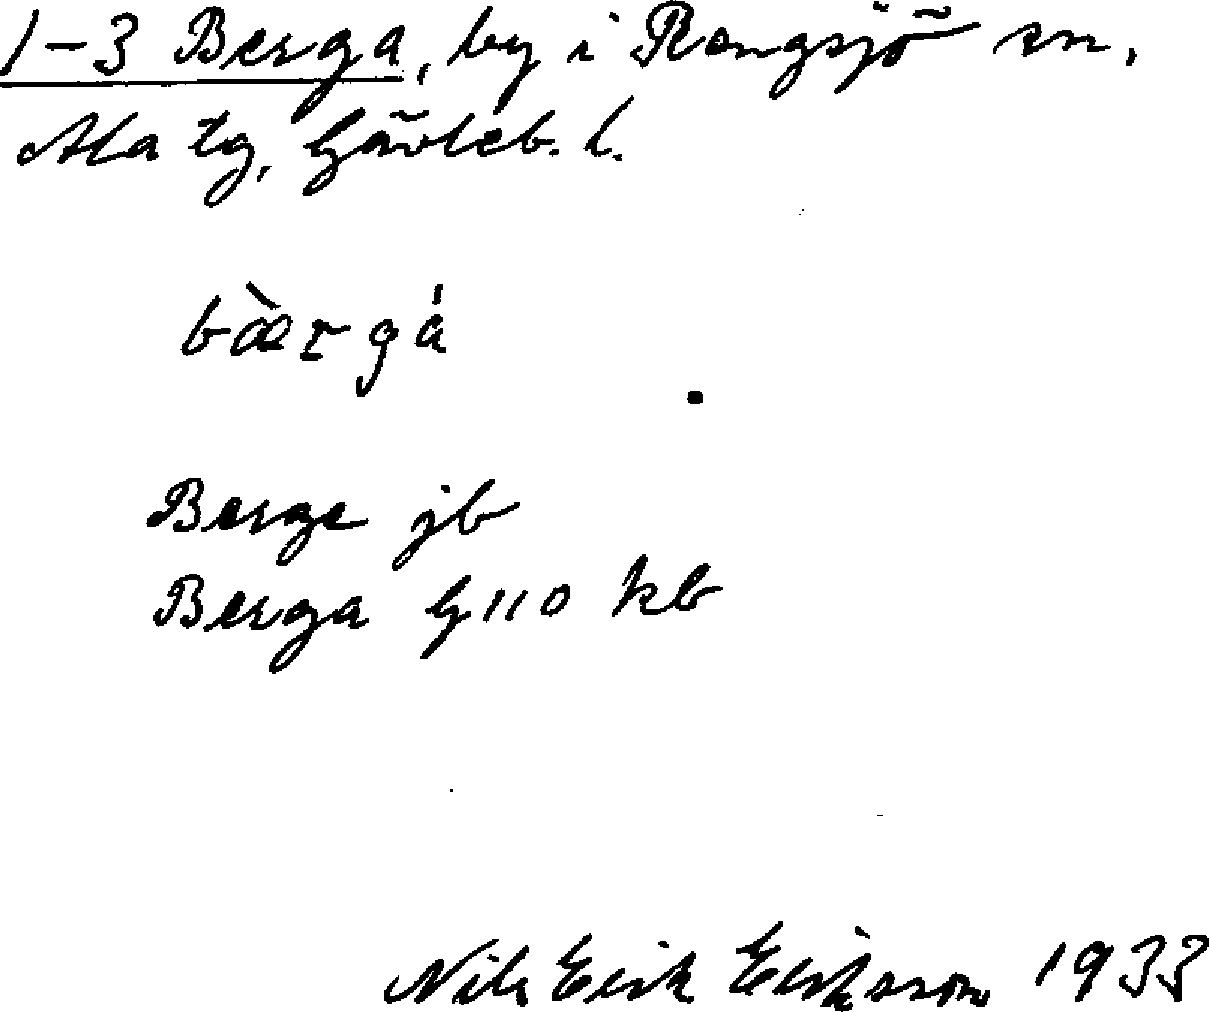 1-3 Berga, by i Rengsjö sn,
Ala tg, Gävleb. l.
bæ̀rgá
Berge jb
Berga G110 kb
Nils Erik Eriksson 1933